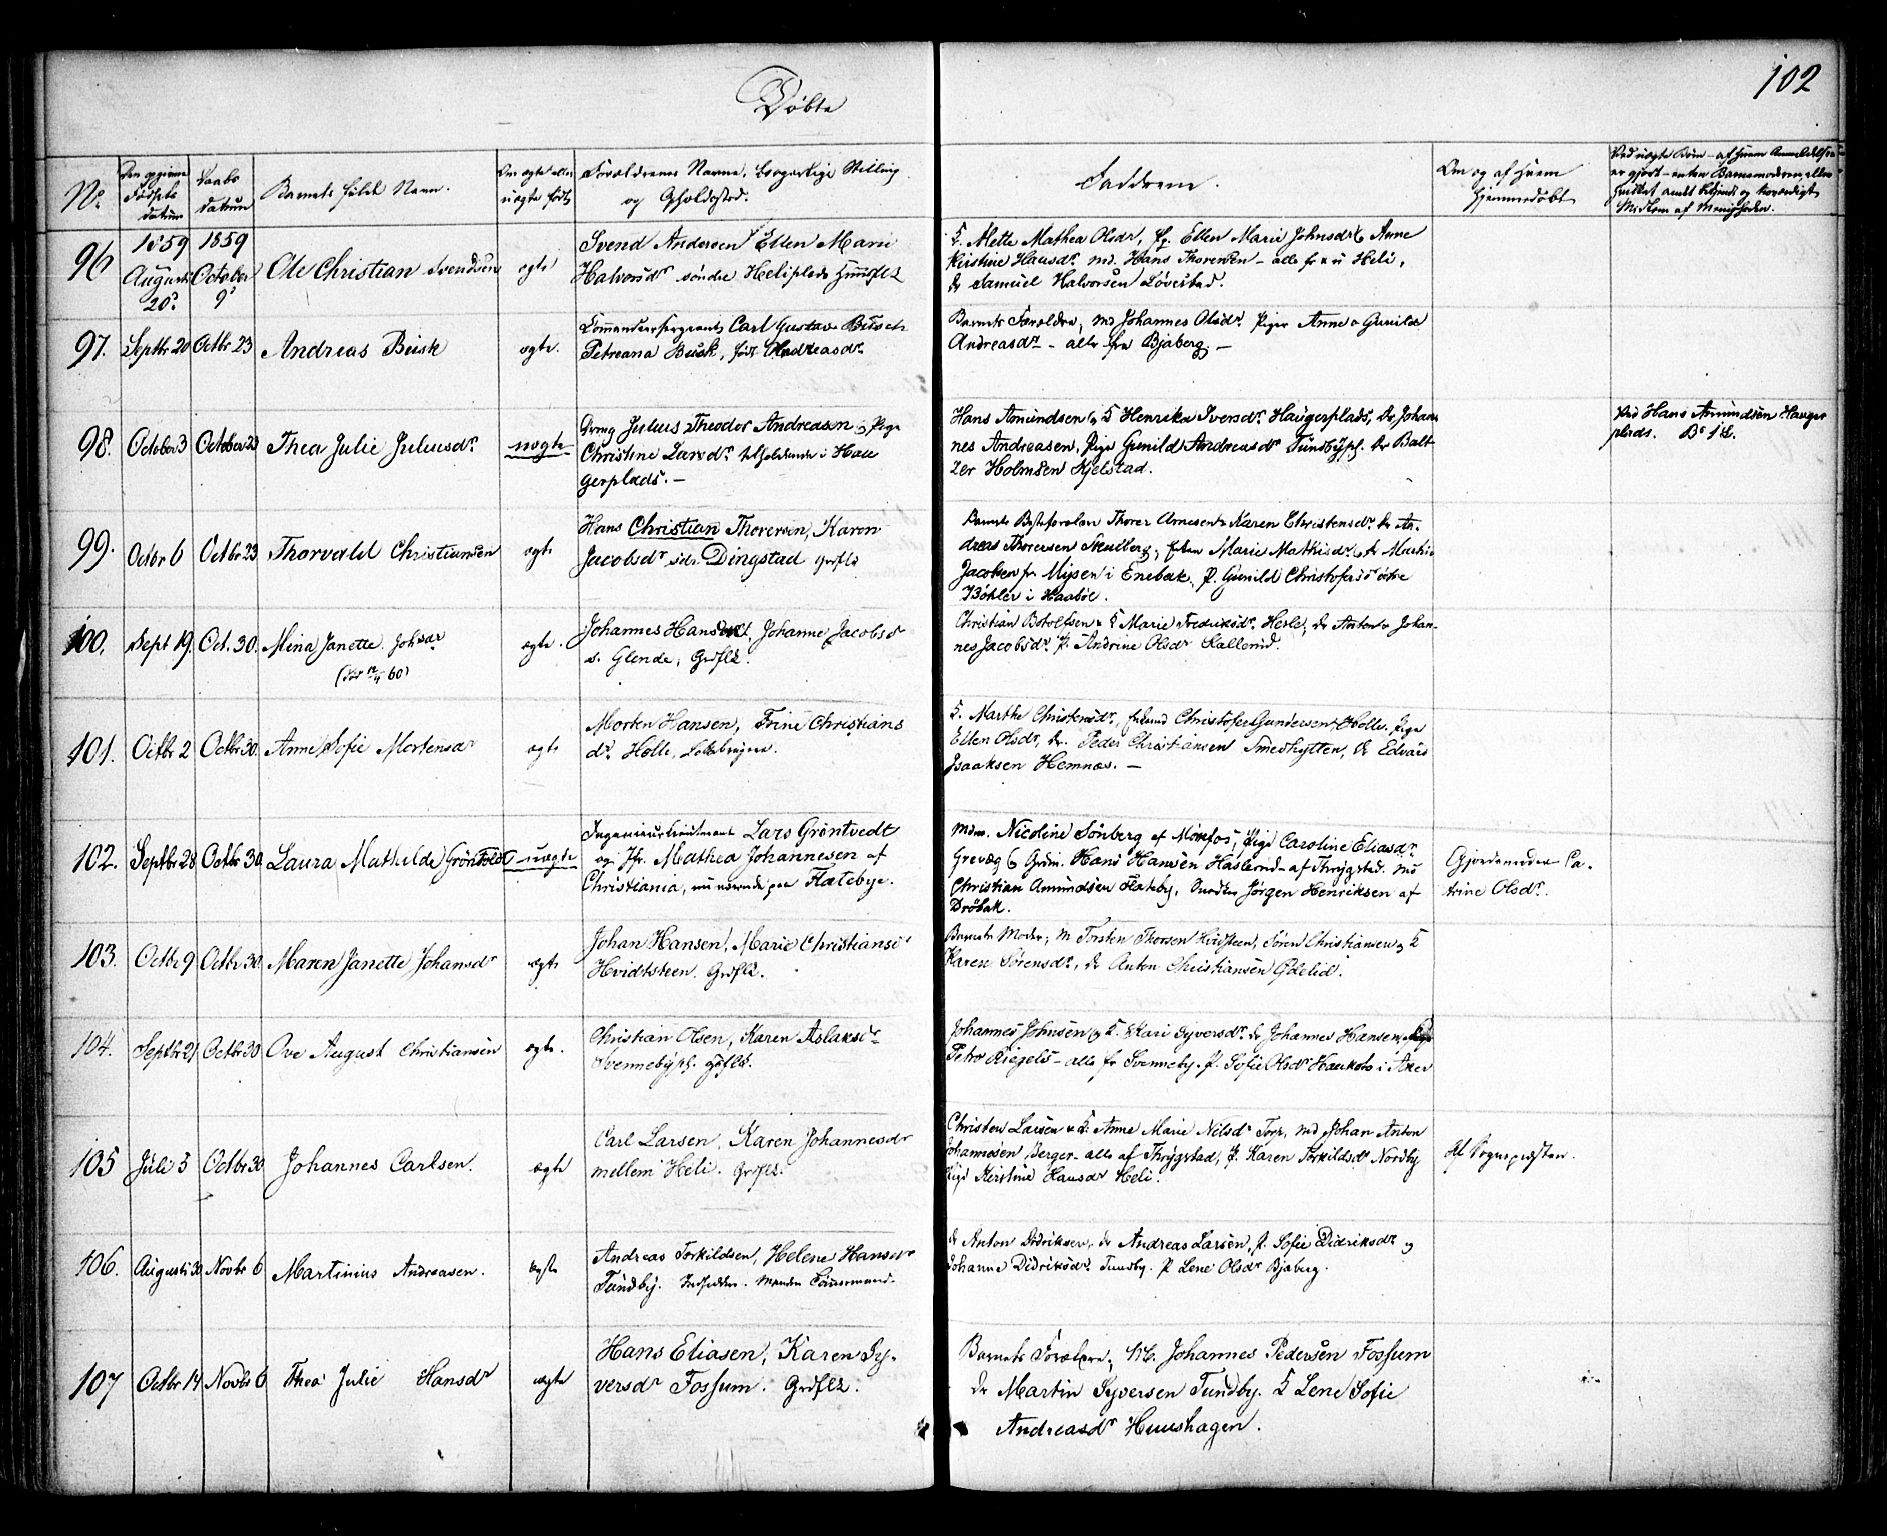 102
Døbte
No
Den opgivne Fødsels datum
Daabs datum
Barnets fulde Navn.
Om ægte eller uægte født
Forældrenes Navne, borgerlige Stilling og Opholdssted.
Fadderne.
Om og af hvem hjemmedøbt
Ved uægte Børn - af hvem Anmeldelsen er gjort - enten Barnemoderen eller
Medlem af Menigheden.
96
1859
August
20.
1859
October
9
Ole Christian Svendsen
ægte
Svend Andersen Ellen Marie
Halvorsdr søndre Heliplads Huusflk
F. Mette Mathea Olsdr, Pg. Ellen Marie Johnsdr & Anne
Kirstine Hansdr md. Hans Thoresen - alle fra Heli,
dr Samuel Halvorsen Løvestad.
97.
Septbr 20
Octbr 23
Andreas Busk
ægte.
Commandeersergeant Carl Gustav Busch
Petreana Busk, født Andreasdr
Barnets Forældre, md Johannes Olsdr. Piger Anne o Gunild
Andreasdr - alle fra Bjaberg. -
98.
October 3
October 23
Thea Julie Juliusdr
uægte
Drng Julius Theodor Andreasen o, Pige
Christine Larsdr tilholdende i Hau
gerplads. -
Hans Amundsen o, F Henrikke Iversdr Haugerplads, Dr Johan
nes Andreasen, Pige Gunild Andreasdr Tundbypl. Dr Balt-
zer Holmsen Kjelstad.
Ved Hans Amundsen Hauger
plads.
99.
Octbr 6
Octbr 23
Thorvald Christiansen
ægte
Hans Christian Thoresen, Karen
Jacobsdr sdr Dingstad grdflk
Barnets Besteforældre Thorer Arnesen o Karen Christensdr Dr An-
dreas Thoresen Skulberg, Enken Marie Mathisdr, dr Martin
Jacobsen fra Mysen i Enebak, P. Gunild Christofersd østre
Bøhler i Haabøl.
100.
Sept 19.
Oct. 30.
Mina Janette Johsdr
ægte.
Johannes Hansen, Johanne Jacobsdr
s. Glende, Grdflk.
Christian Botolfsen o F Marie Fredriksdr Hesle, Dr Anton o Johan-
nes Jacobsdr. P. Andrine Olsdr Sallerud.
101.
Octbr 2
Octbr 30.
Anne Sofie Mortensdr
ægte
Morten Hansen, Trine Christians
dr. Holle,
F. Marthe Christensdr, Enkemd Christofer Gundersen Holle, Pige
Ellen Olsdr, Dr. Peder Christiansen Smedhytten, Dr Edvard
Isaaksen Hemnæs. -
102.
Septbr 28
Octbr 30
Laura Mathilde Gröntvedt
uægte
Ingenieurlieutenant Lars Gröntvedt
og Jfr. Mathea Johannesen af
Christiania, nuværende paa Flateby.
Mdm. Nicoline Sönberg af Mønfos, Pige Caroline Eliasdr
Grevæg o Grdm. Hans Hansen Haslerud - af Thrygstad. Md
Christian Amundsen Flateby, Snedker Jørgen Henriksen af
Drøbak.
Gjordemoder Ca-
trine Olsdr.
103.
Octbr 9
Octbr 30.
Maren Janette Johansdr
ægte
Johan Hansen, Marie Christiansd
Hvidtsteen. Grdflk.
Barnets Moder, m Torsten Thorsen Hvidsteen, Søren Christiansen o F
Karen Sørensdr, Dr Anton Christiansen Ødelid.
104.
Septbr 21
Octbr 30
Ove August Christiansen
ægte.
Christian Olsen, Karen Aslaksdr
Svennebypl. grdflk.
Johannes Johnsen o F. Kari Syversdr Dr Johannes Hansen, Pige
Petra Riegels - alle fr Svenneby. P. Sofie Olsdr Hauketo i Aker
105
Juli 3
Octbr 30
Johannes Carlsen.
ægte
Carl Larsen, Karen Johannesdr
mellem Heli. Grdflk.
Christen Larsen o F. Anne Marie Nilsdr Torp, Md Johan Anton
Johannesen Berger - alle af Thrygstad, P. Karen Torkildsdr Nordby
Pige Kirstine Hansdr Heli.
Af Sognepræsten.
106.
August 30
Novbr 6
Martinius Andreasen.
ægte
Andreas Torkildsen, Helene Hansdr
Tundby. Indsidder. Manden Tømmermand.
Dr Anton Didriksen, dr Andreas Larsen, P. Sofie Didriksdr og
Johanne Didriksdr. Tundby. P Lene Olsdr Bjaberg.
107
Octbr 14
Novbr 6
Thea Julie Hansdr
ægte
Hans Eliasen, Karen Sy-
versdr Fossum. Grdflk.
Barnets Forældre, Md. Johannes Pedersen Fossum
Dr Martin Syversen Tundby. F Lene Sofie
Andreasdr Huushagen.